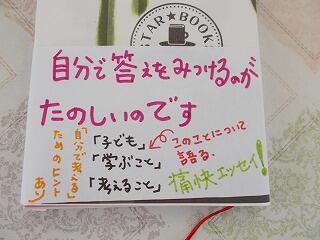 STAR★BOOKS
自分で答えをみつけるのが
たのしいのです
「子ども」
「学ぶこと」
「考えること」
このことについて
語る、
痛快エッセイ!
「自分で考える」
ためのヒント
あり